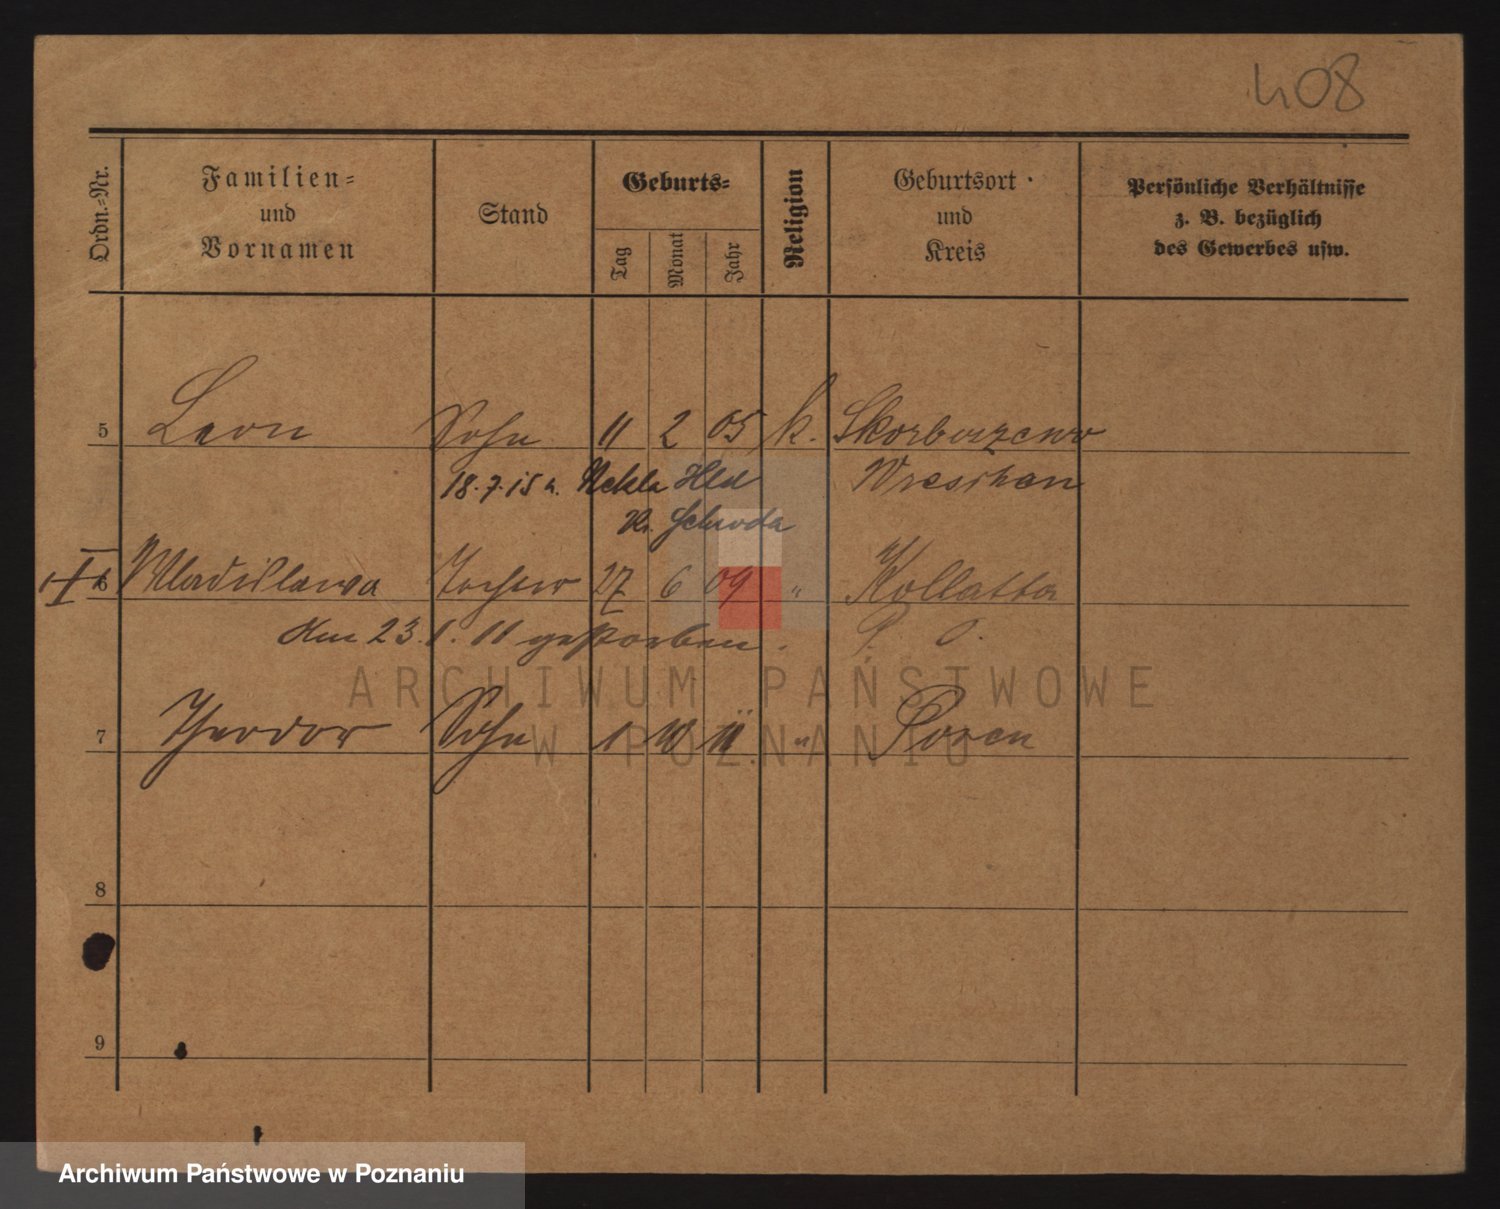 408
Ordn.-Nr.
Familien-
und
Vornamen
Stand
Geburts-
Tag
Monat
Jahr
Religion
Geburtsort
und
Kreis
Persönliche Verhältnisse
z. B. bezüglich
des Gewerbes usw.
5 Leon Sohn 11 2 05 k. Skorborzewo
18.7.15 n. Nekla Hld Wreschen
Kr. Schroda
6 Wladislawa Tochter 27 6 09 " Kollatta
Am 23.1.11 gestorben. P. O.
7 Theodor Sohn 1 10 11 " Posen
8
9
ARCHIWUM PAŃSTWOWE
W POZNANIU
Archiwum Państwowe w Poznaniu